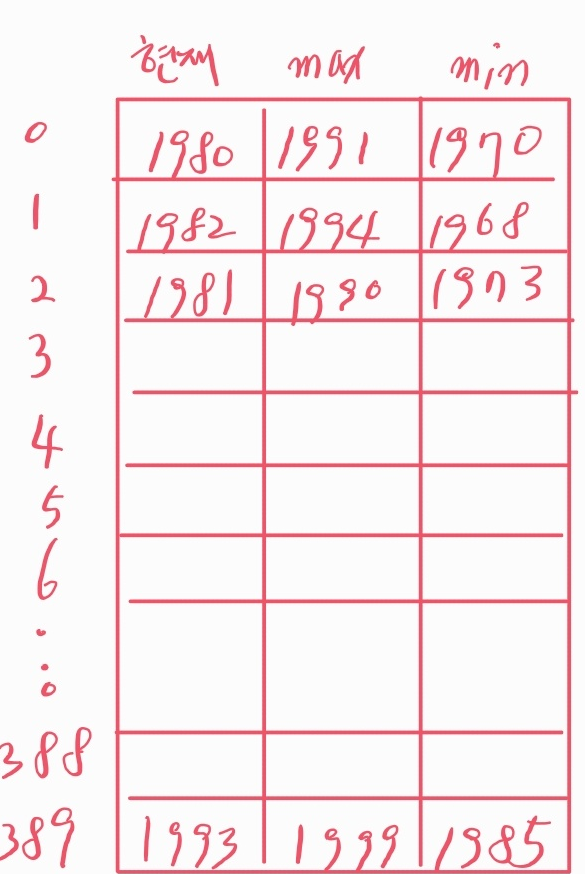 현재 max min
0 1980 1991 1970
1 1982 1994 1968
2 1981 1990 1973
3
4
5
6
388
389 1993 1999 1985